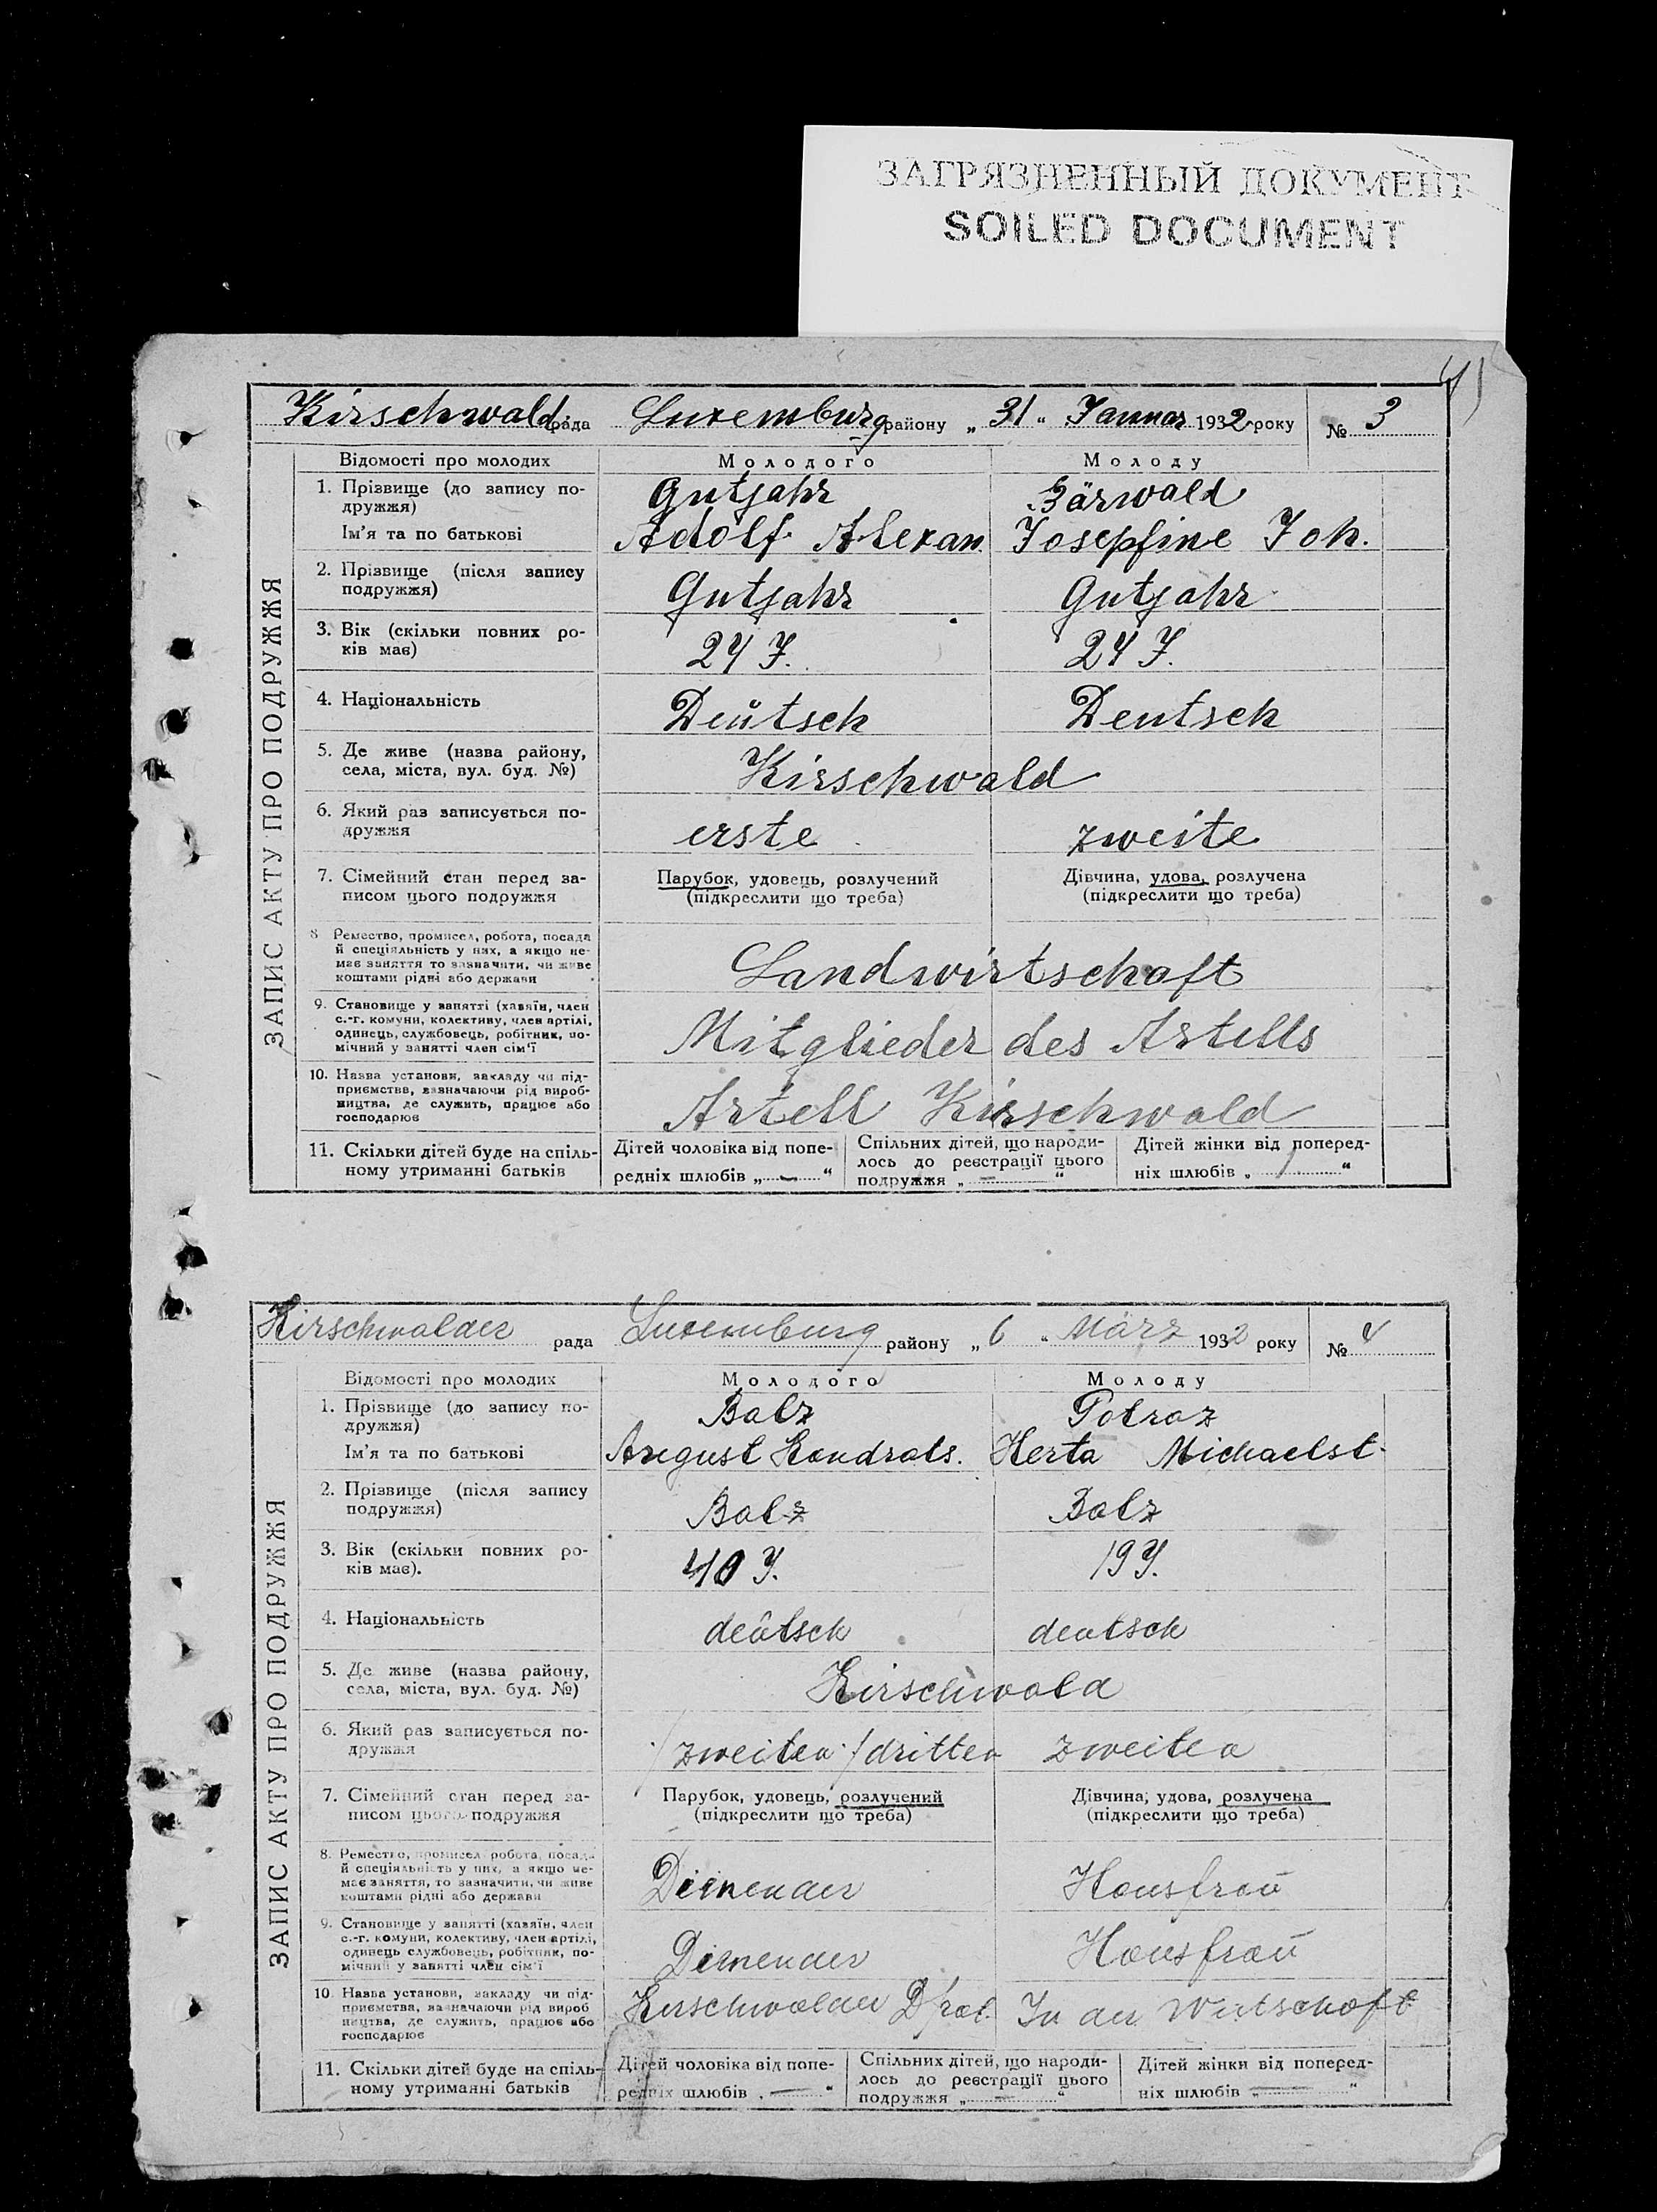 ЗАГРЯЗНЕННЫЙ ДОКУМЕНТ
SOILED DOCUMENT
Kirschwald рада Luxemburg району „31“ Januar 1932 року № 3
ЗАПИС АКТУ ПРО ПОДРУЖЖЯ
Відомості про молодих Молодого Молоду
1. Прізвище (до запису по- Gutjahr Bärwald
дружжя)
Ім'я та по батькові Adolf Alexan. Josepfine Joh.
2. Прізвище (після запису
подружжя) Gutjahr Gutjahr
3. Вік (скільки повних ро-
ків має) 24 J. 24 J.
4. Національність Deutsch Deutsch
5. Де живе (назва району,
села, міста, вул. буд. №) Kirschwald
6. Який раз записується по-
дружжя erste zweite
7. Сімейний стан перед за- Парубок, удовець, розлучений Дівчина, удова, розлучена
писом цього подружжя (підкреслити що треба) (підкреслити що треба)
8 Ремество, промисел, робота, посада
й спеціяльність у них, а якщо не-
має заняття то зазначити, чи живе Landwirtschaft
коштами рідні або держави
9. Становище у занятті (хазяїн, член
с.-г. комуни, колективу, член артілі,
одинець, службовець, робітник, по- Mitglieder des Artells
мічний у занятті член сім'ї
10. Назва установи, закладу чи під-
приємства, зазначаючи рід вироб-
ництва, де служить, працює або Artell Kirschwald
господарює
11. Скільки дітей буде на спіль- Дітей чоловіка від попе- Спільних дітей, що народи- Дітей жінки від поперед-
ному утриманні батьків редніх шлюбів „—“ лось до реєстрації цього ніх шлюбів „1“
подружжя „—“
Kirschwalder рада Luxemburg району „6“ März 1932 року № 4
ЗАПИС АКТУ ПРО ПОДРУЖЖЯ
Відомості про молодих Молодого Молоду
1. Прізвище (до запису по- Balz Potraz
дружжя)
Ім'я та по батькові August Kondrats. Herta Michaelst.
2. Прізвище (після запису
подружжя) Balz Balz
3. Вік (скільки повних ро-
ків має). 40 J. 19 J.
4. Національність deutsch deutsch
5. Де живе (назва району,
села, міста, вул. буд. №) Kirschwald
6. Який раз записується по-
дружжя /zweiten/ dritten zweiten
7. Сімейний стан перед за- Парубок, удовець, розлучений Дівчина, удова, розлучена
писом цього подружжя (підкреслити що треба) (підкреслити що треба)
8. Ремество, промисел робота, посада
й спеціяльність у них, а якщо не-
має заняття, то зазначити, чи живе Deinender Hausfrau
коштами рідні або держави
9. Становище у занятті (хазяїн, член
с.-г. комуни, колективу, член артілі,
одинець службовець, робітник, по- Deinender Hausfrau
мічний у занятті член сім'ї
10. Назва установи, закладу чи під-
приємства, зазначаючи рід вироб
ництва, де служить, працює або Kirschwalder D/rat. In der Wirtschaft
господарює
11. Скільки дітей буде на спіль- Дітей чоловіка від попе- Спільних дітей, що народи- Дітей жінки від поперед-
ному утриманні батьків редніх шлюбів „—“ лось до реєстрації цього ніх шлюбів „—“
подружжя „—“